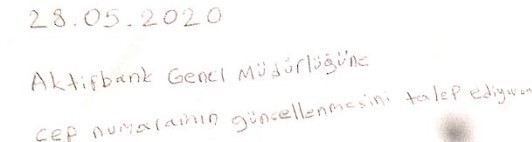 28.05.2020
Aktifbank Genel Müdürlüğüne
cep numaramın güncellenmesini talep ediyorum